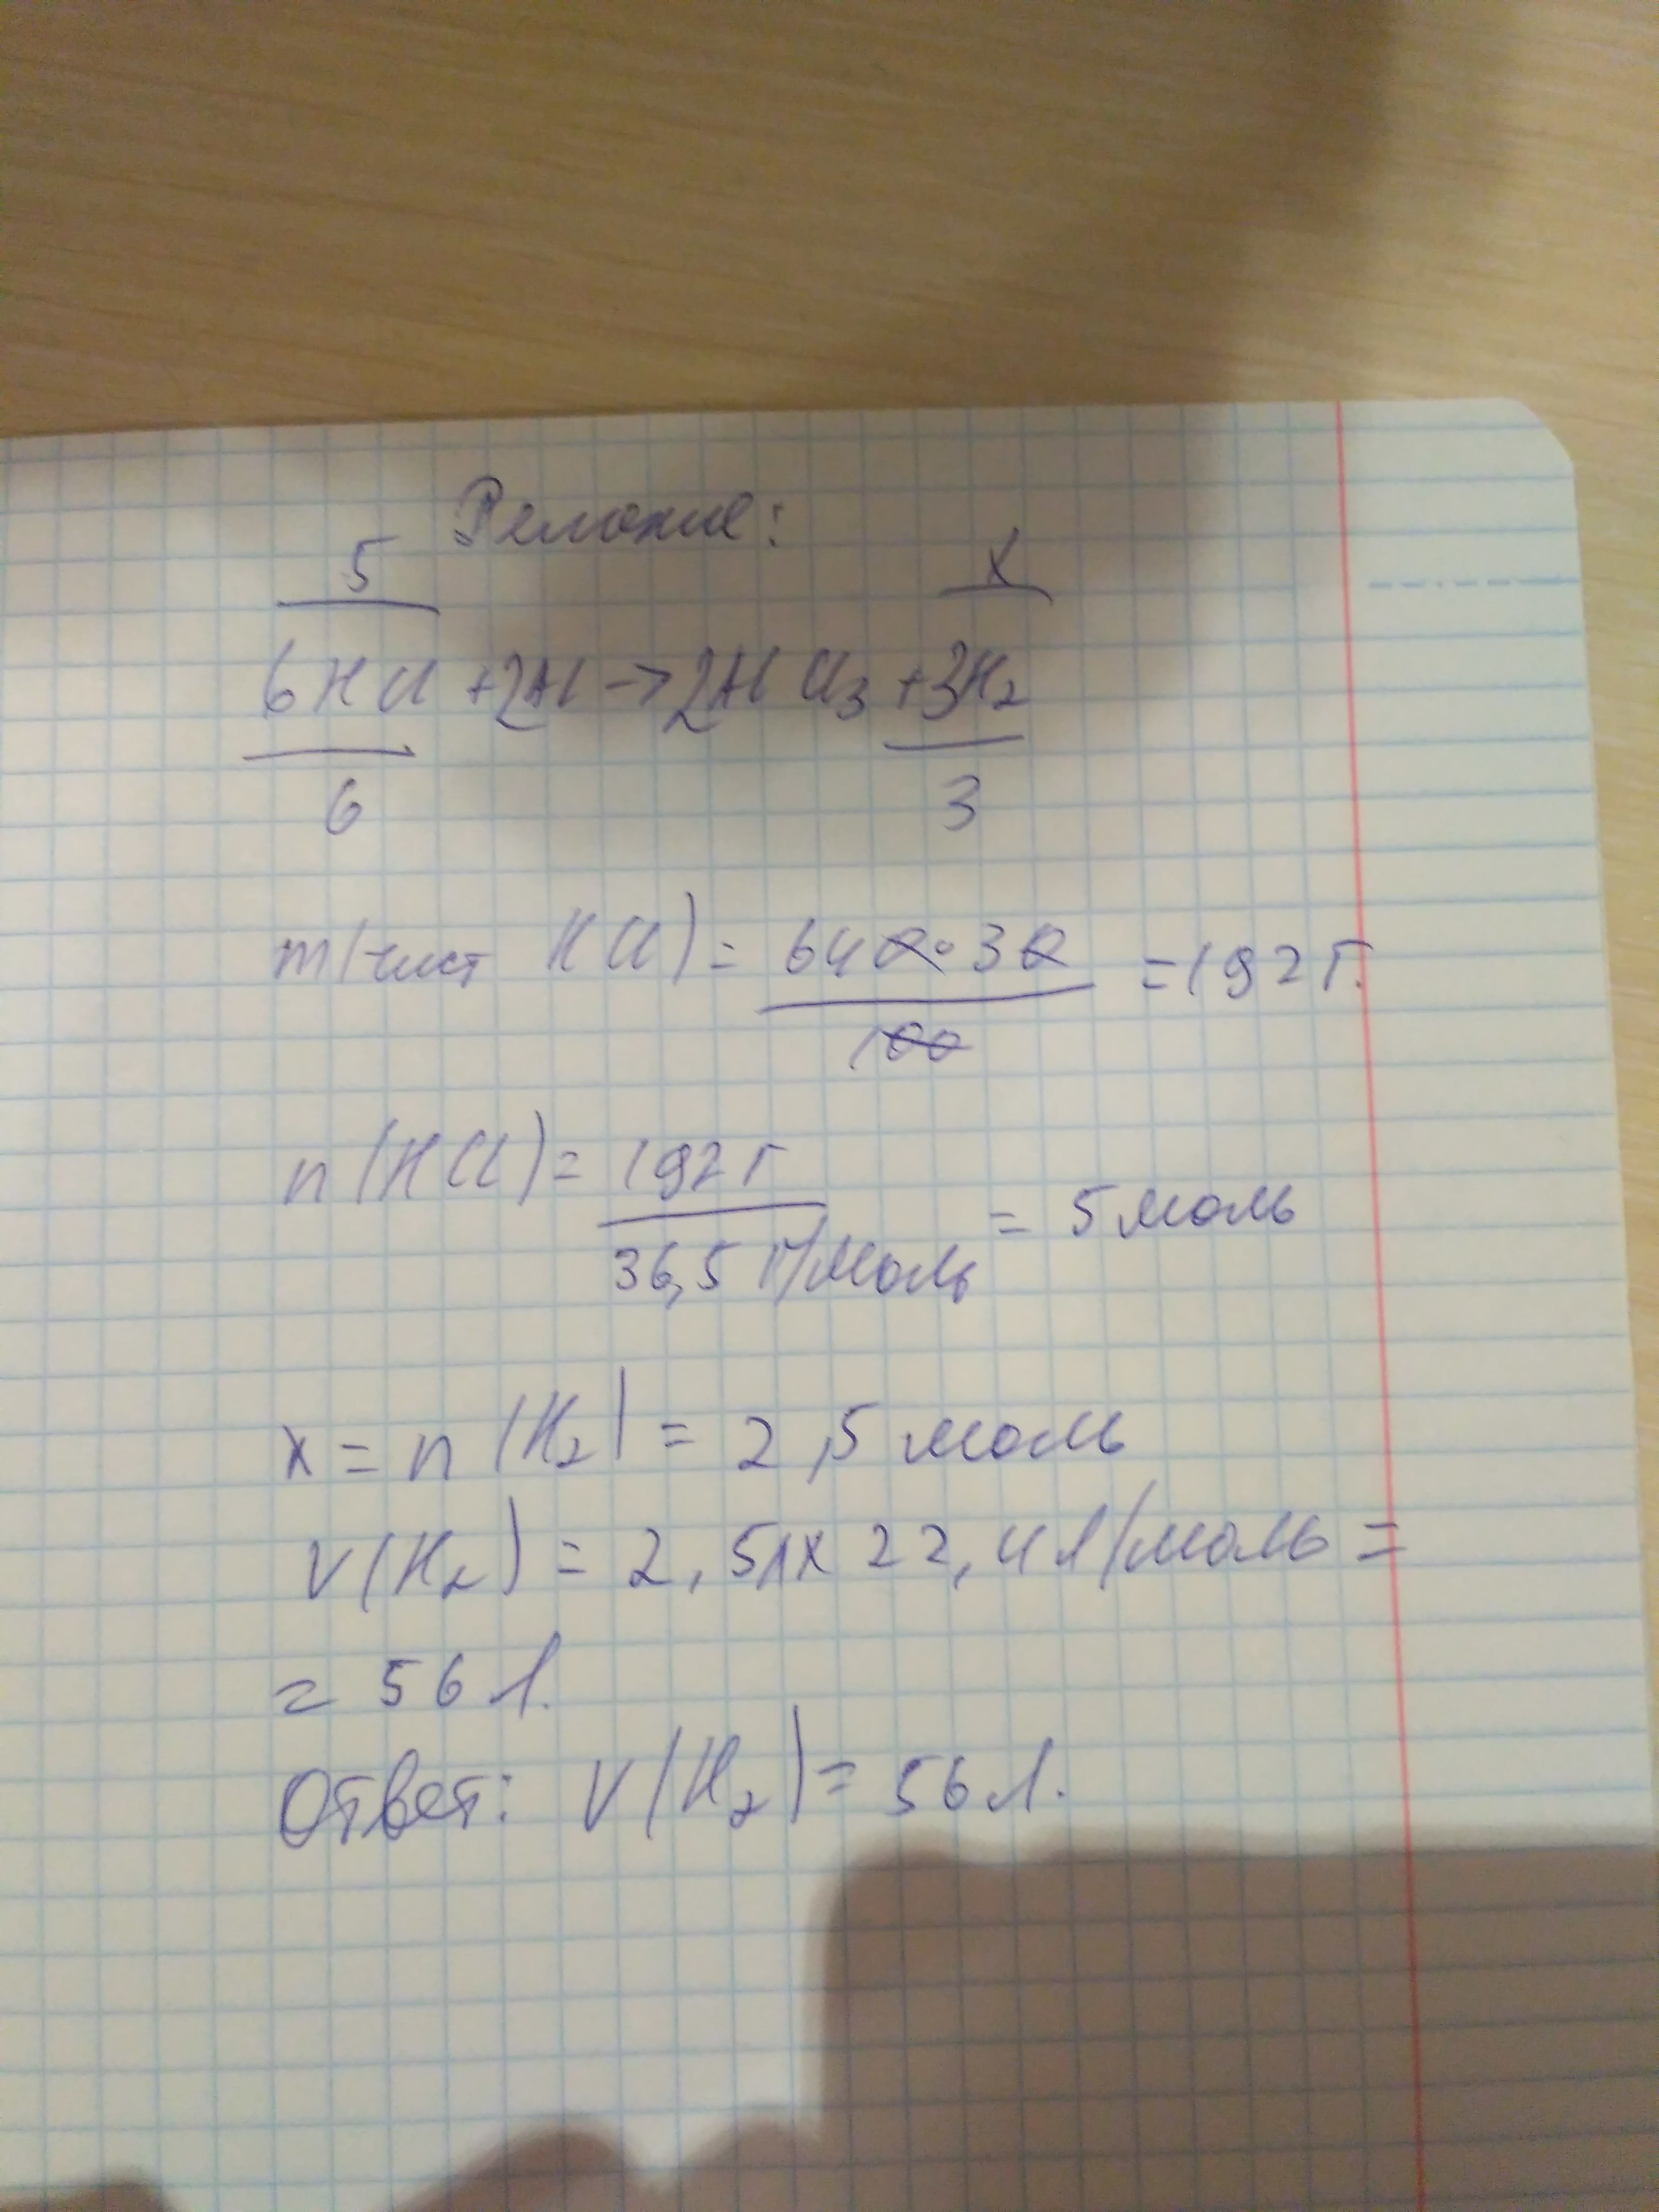 Решение:
5 x
6HCl + 2Al → 2AlCl3 + 3H2
6 3
m(чист HCl) = 640·30 / 100 = 192 г.
n(HCl) = 192 г / 36,5 г/моль = 5 моль
x = n(H2) = 2,5 моль
V(H2) = 2,5 л x 22,4 л/моль =
= 56 л.
Ответ: V(H2) = 56 л.